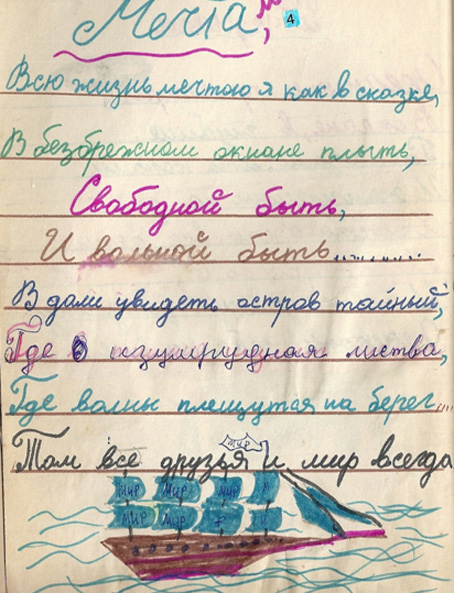 Мечта,
4
Всю жизнь мечтою я как в сказке,
В безбрежном окиане плыть,
Свободной быть,
И вольной быть..........
В дали увидеть остров тайный,
Где изумрудная листва,
Где волны плещутся на берег...
Там все друзья и мир всегда
мир
мир мир мир
мир мир